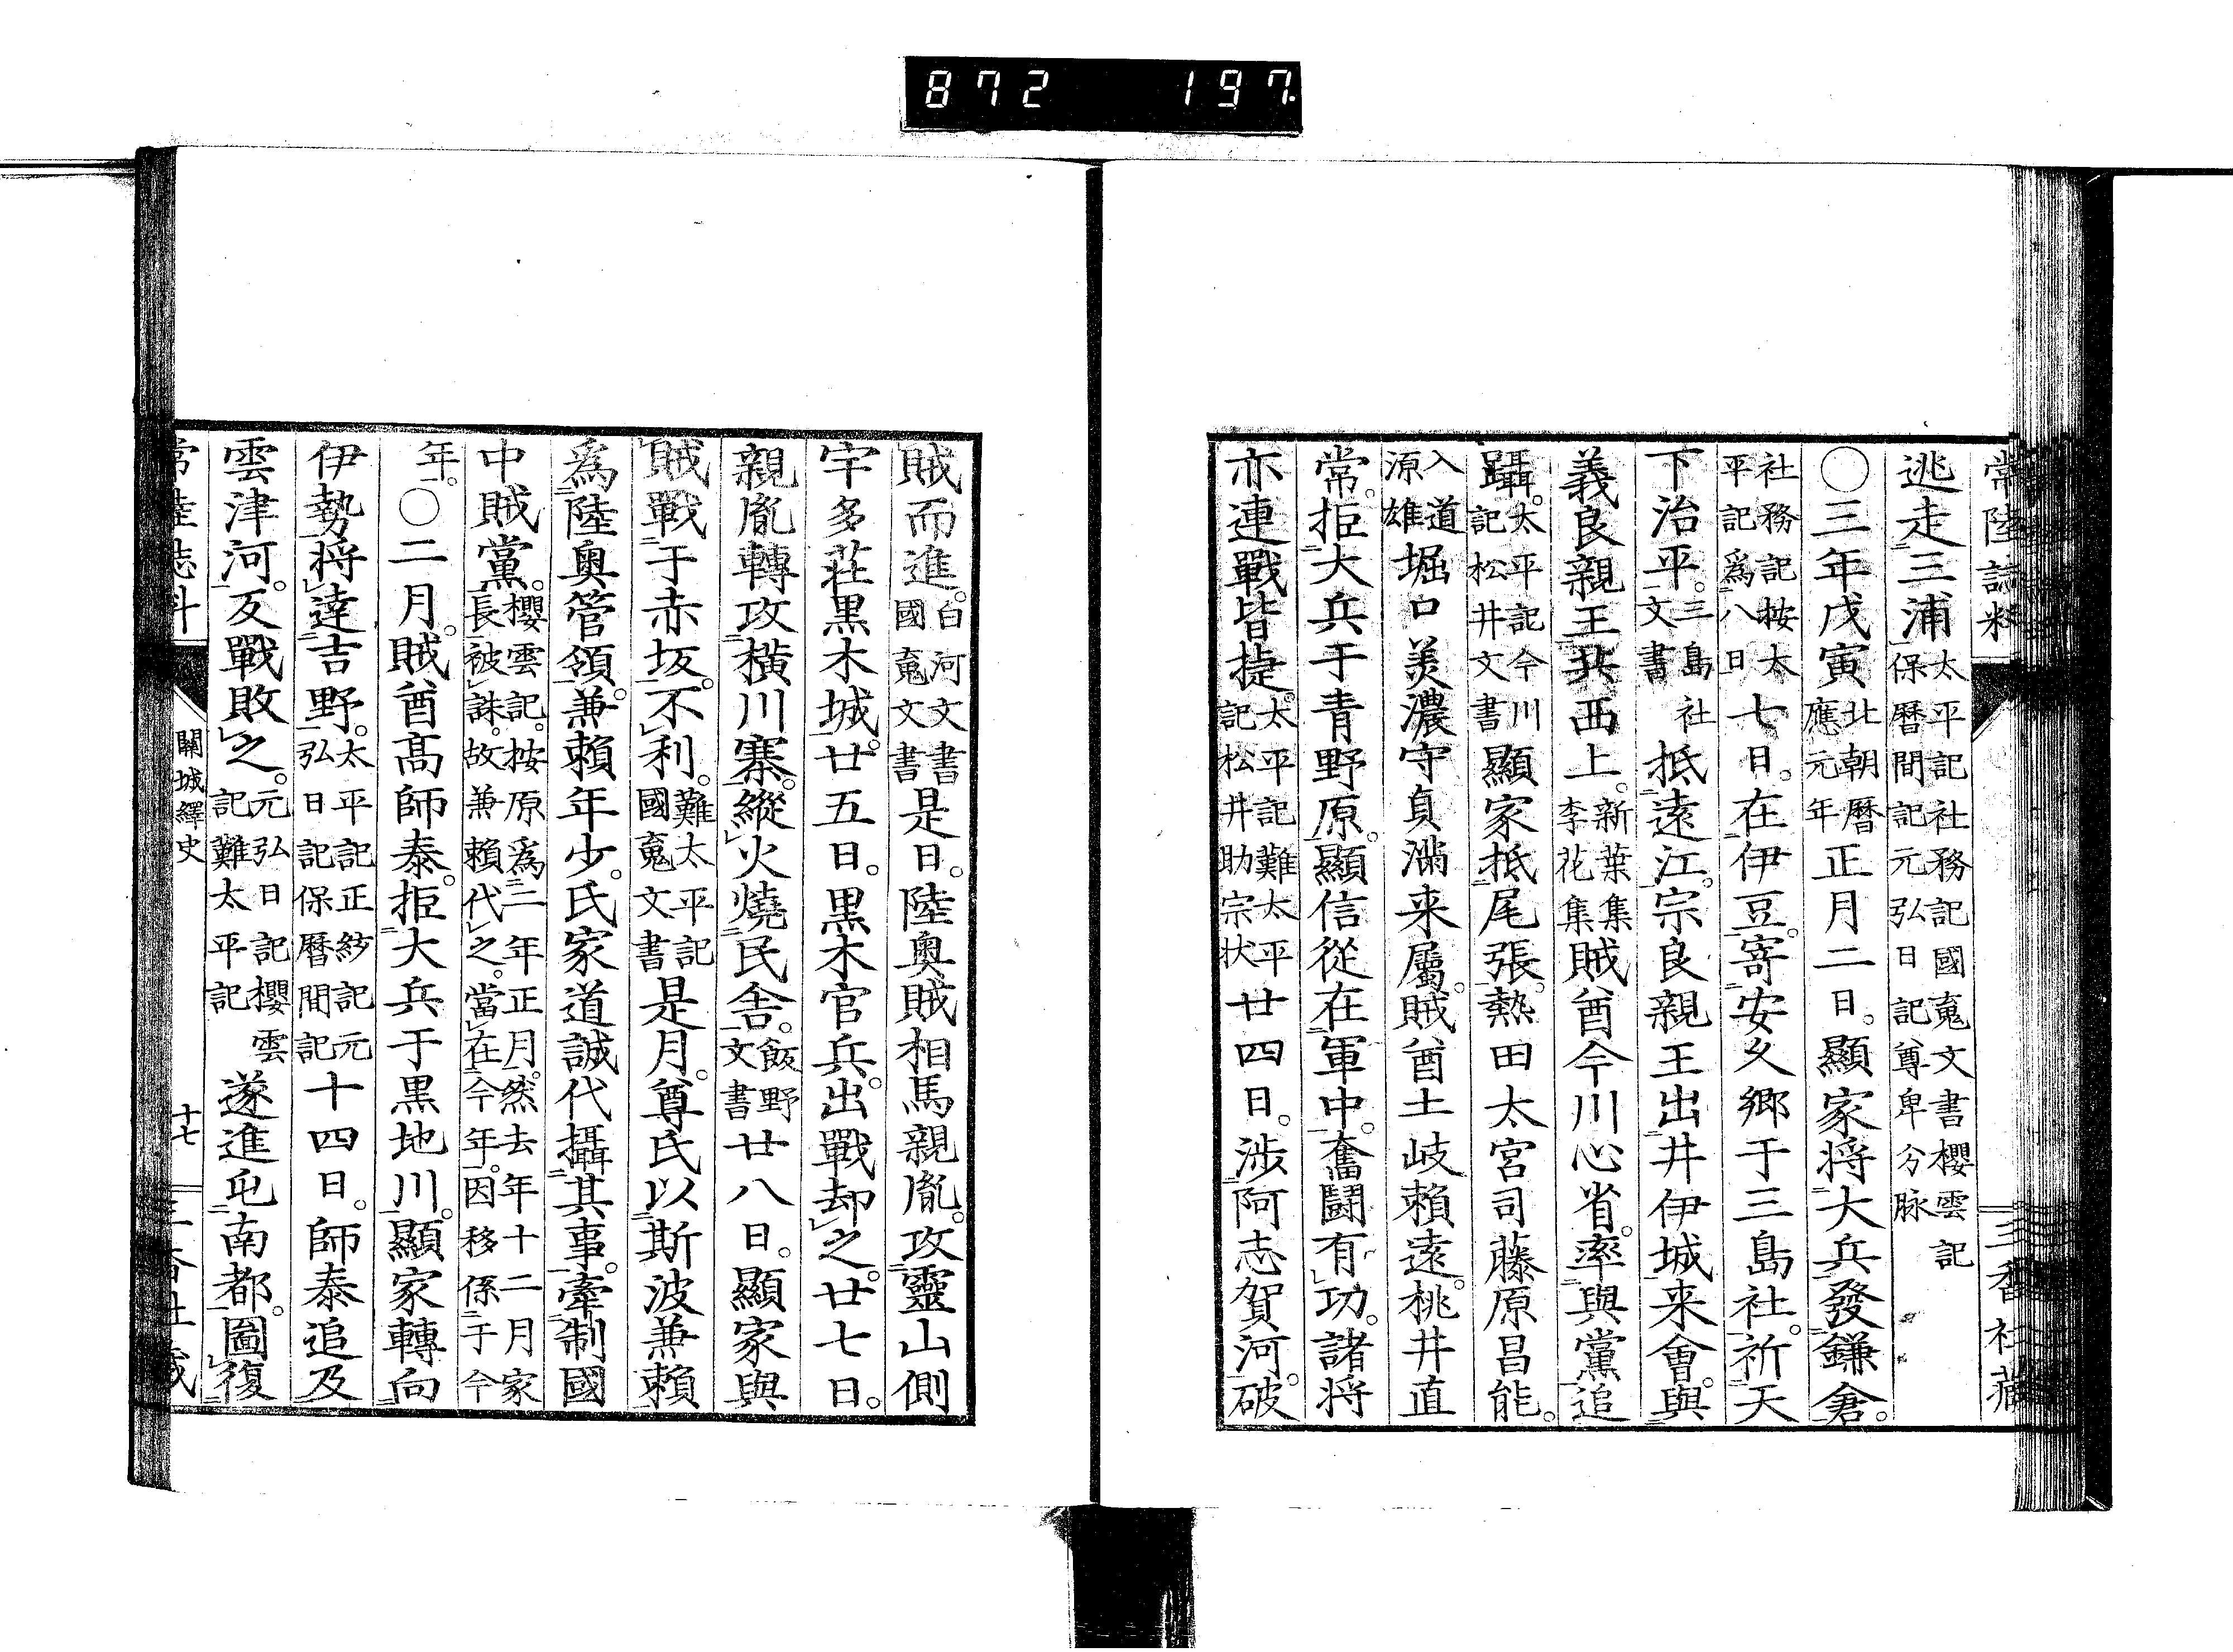 872 197.
常陸誌料
三香社藏
逃走三浦太平記社務記國䰟文書櫻雲記保曆間記元弘日記尊卑分脉
○三年戊寅北朝曆應元年正月二日。顯家將大兵發鎌倉。
社務記按太平記爲八日七日。在伊豆。寄安久郷于三島社。祈天
下治平。三島社文書抵遠江。宗良親王出井伊城来會。與
義良親王共西上。新葉集李花集賊酋今川心省。率與黨追
躡。太平記今川記松井文書顯家抵尾張。熱田太宮司藤原昌能。
入道源雄堀口羙濃守貞滿来屬。賊酋土岐賴遠。桃井直
常。拒大兵于青野原。顯信從在軍中。奮鬪有功。諸將
亦連戰皆捷。太平記難太平記松井助宗状廿四日。涉阿志賀河。破
賊而進。白河文書國䰟文書是日。陸奥賊相馬親胤。攻靈山側
宇多莊黒木城。廿五日。黒木官兵。出戰却之。廿七日。
親胤轉攻横川寨。縱火燒民舎。飯野文書廿八日。顯家與
賊戰于赤坂。不利。難太平記國䰟文書是月。尊氏以斯波兼賴
爲陸奥管領。兼賴年少。氏家道誠代攝其事。牽制國
中賊黨。櫻雲記。按原爲二年正月。然去年十二月家長被誅。故兼賴代之。當在今年。因移係于今
年。○二月。賊酋髙師泰。拒大兵于黒地川。顯家轉向
伊勢。將達吉野。太平記正紗記元弘日記保曆間記十四日。師泰追及
雲津河。反戰敗之。元弘日記櫻雲記難太平記遂進屯南都。圖復
常陸誌料
關城繹史
十七
三香社藏